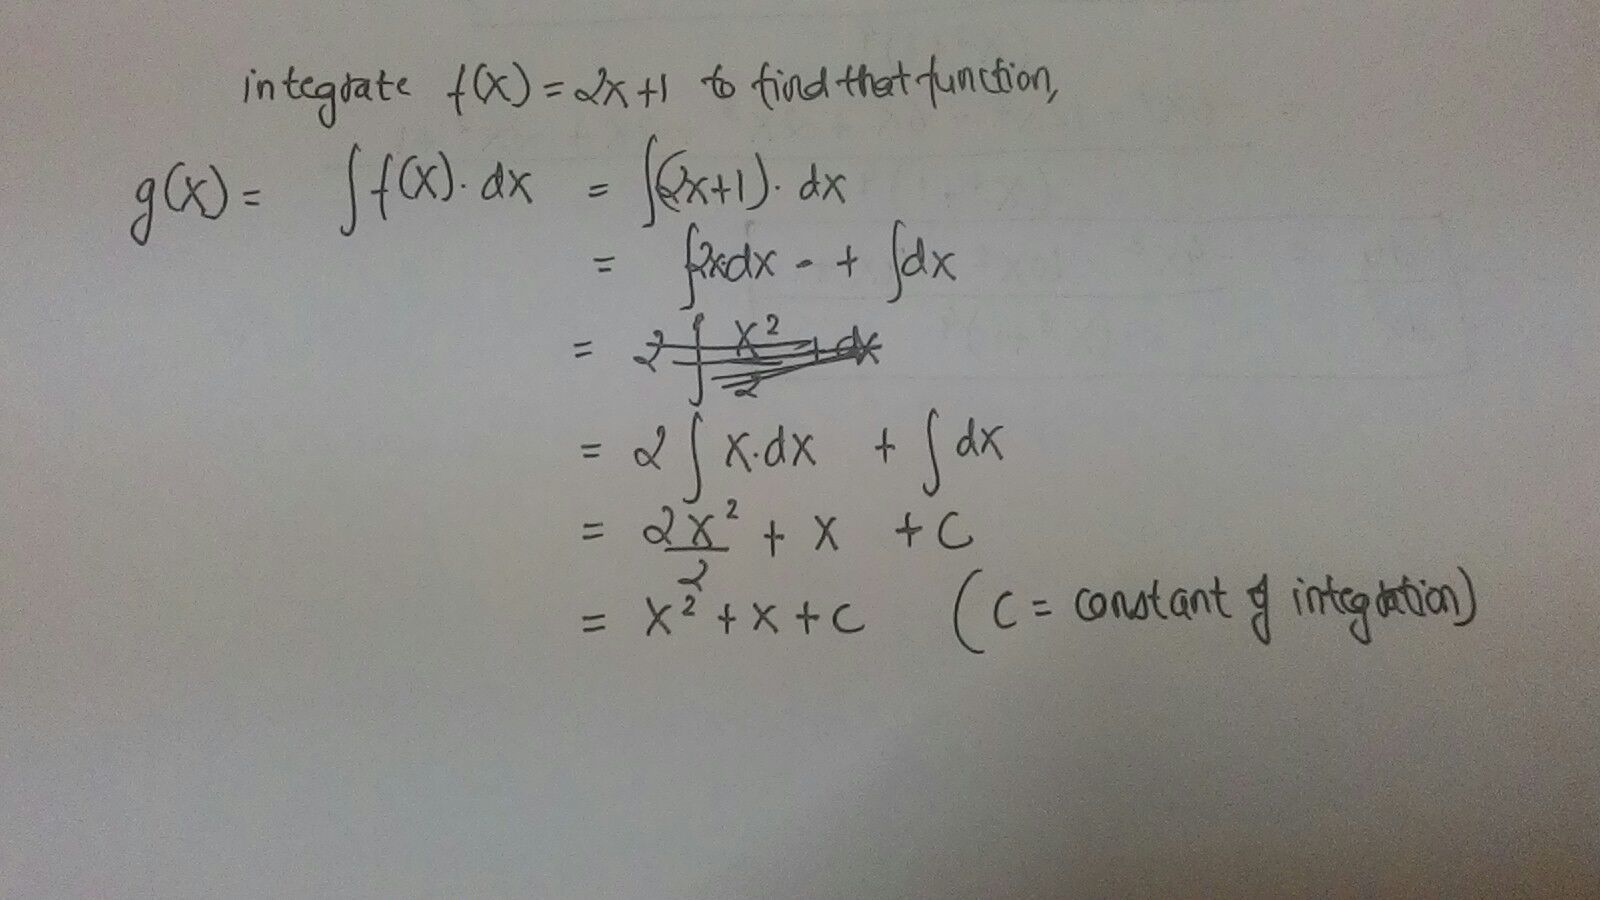 integrate f(x) = 2x+1 to find that function,
g(x) = ∫f(x). dx = ∫(2x+1). dx
= ∫2x.dx - + ∫dx
= 2∫x²/2 + dx
= 2∫x.dx + ∫dx
= 2x²/2 + x + C
= x² + x + C (C = constant of integration)